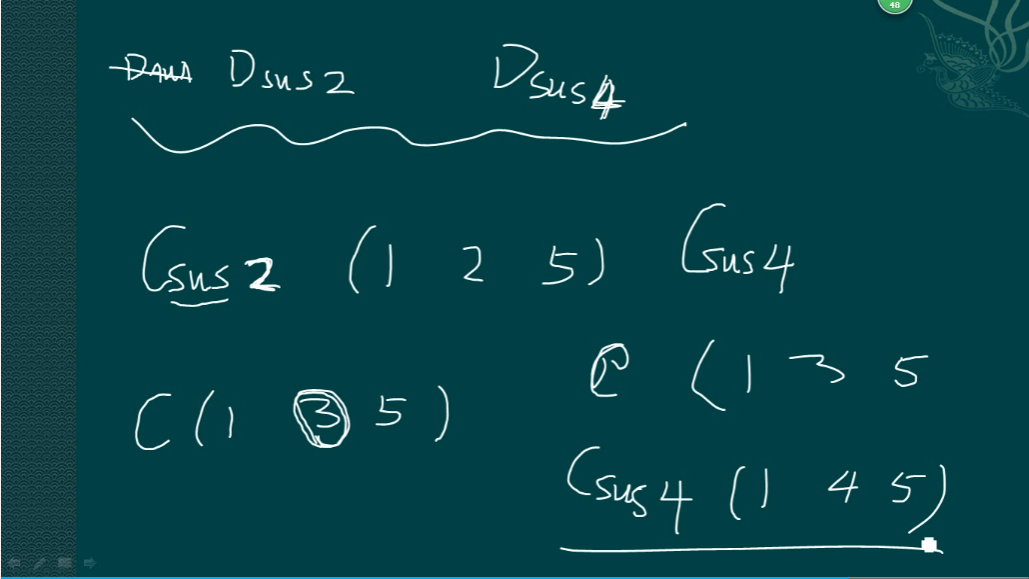 48
Dsus2 Dsus4
Csus2 (1 2 5) Csus4
C (1 3 5
C (1 3 5)
Csus4 (1 4 5)